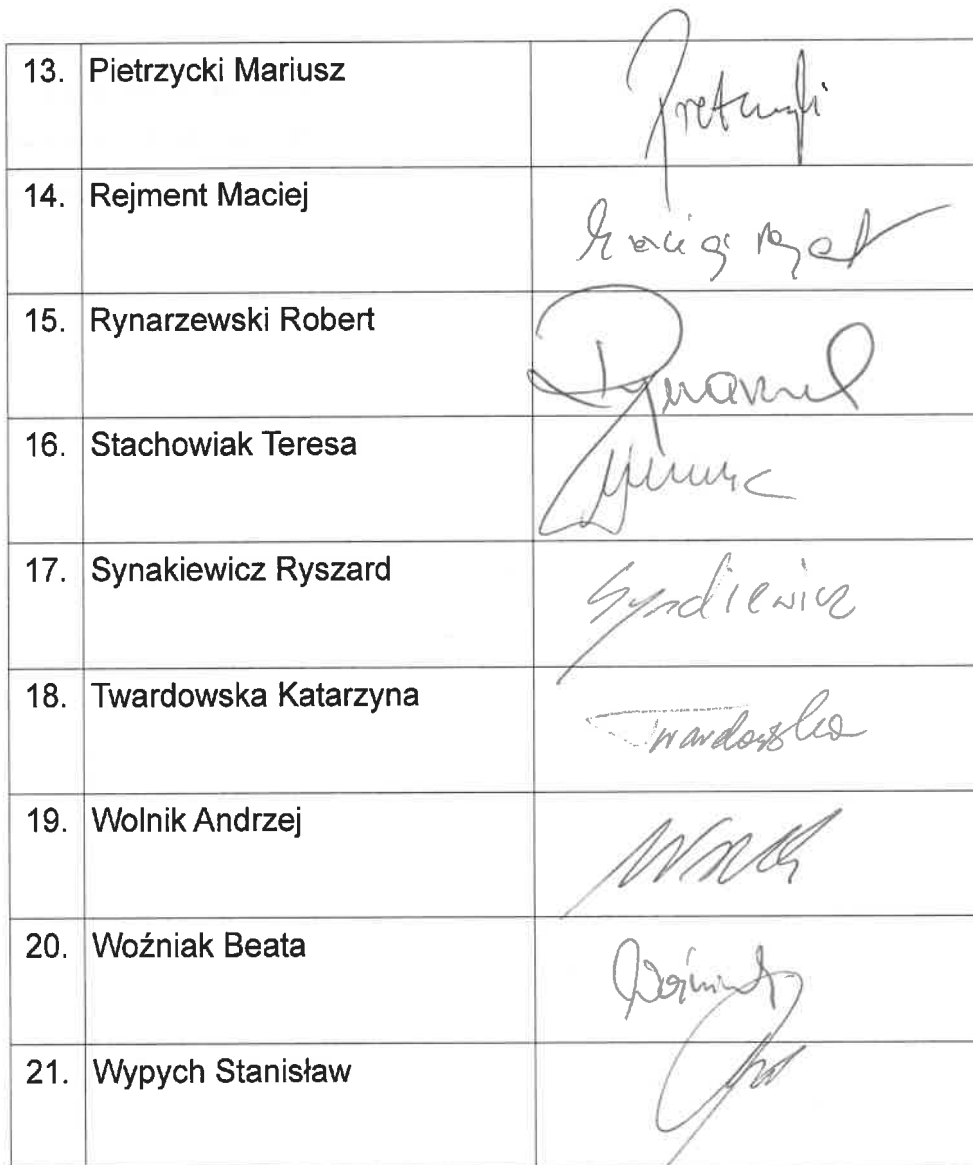 13. Pietrzycki Mariusz
14. Rejment Maciej
15. Rynarzewski Robert
16. Stachowiak Teresa
17. Synakiewicz Ryszard Synakiewicz
18. Twardowska Katarzyna Twardowska
19. Wolnik Andrzej
20. Woźniak Beata
21. Wypych Stanisław